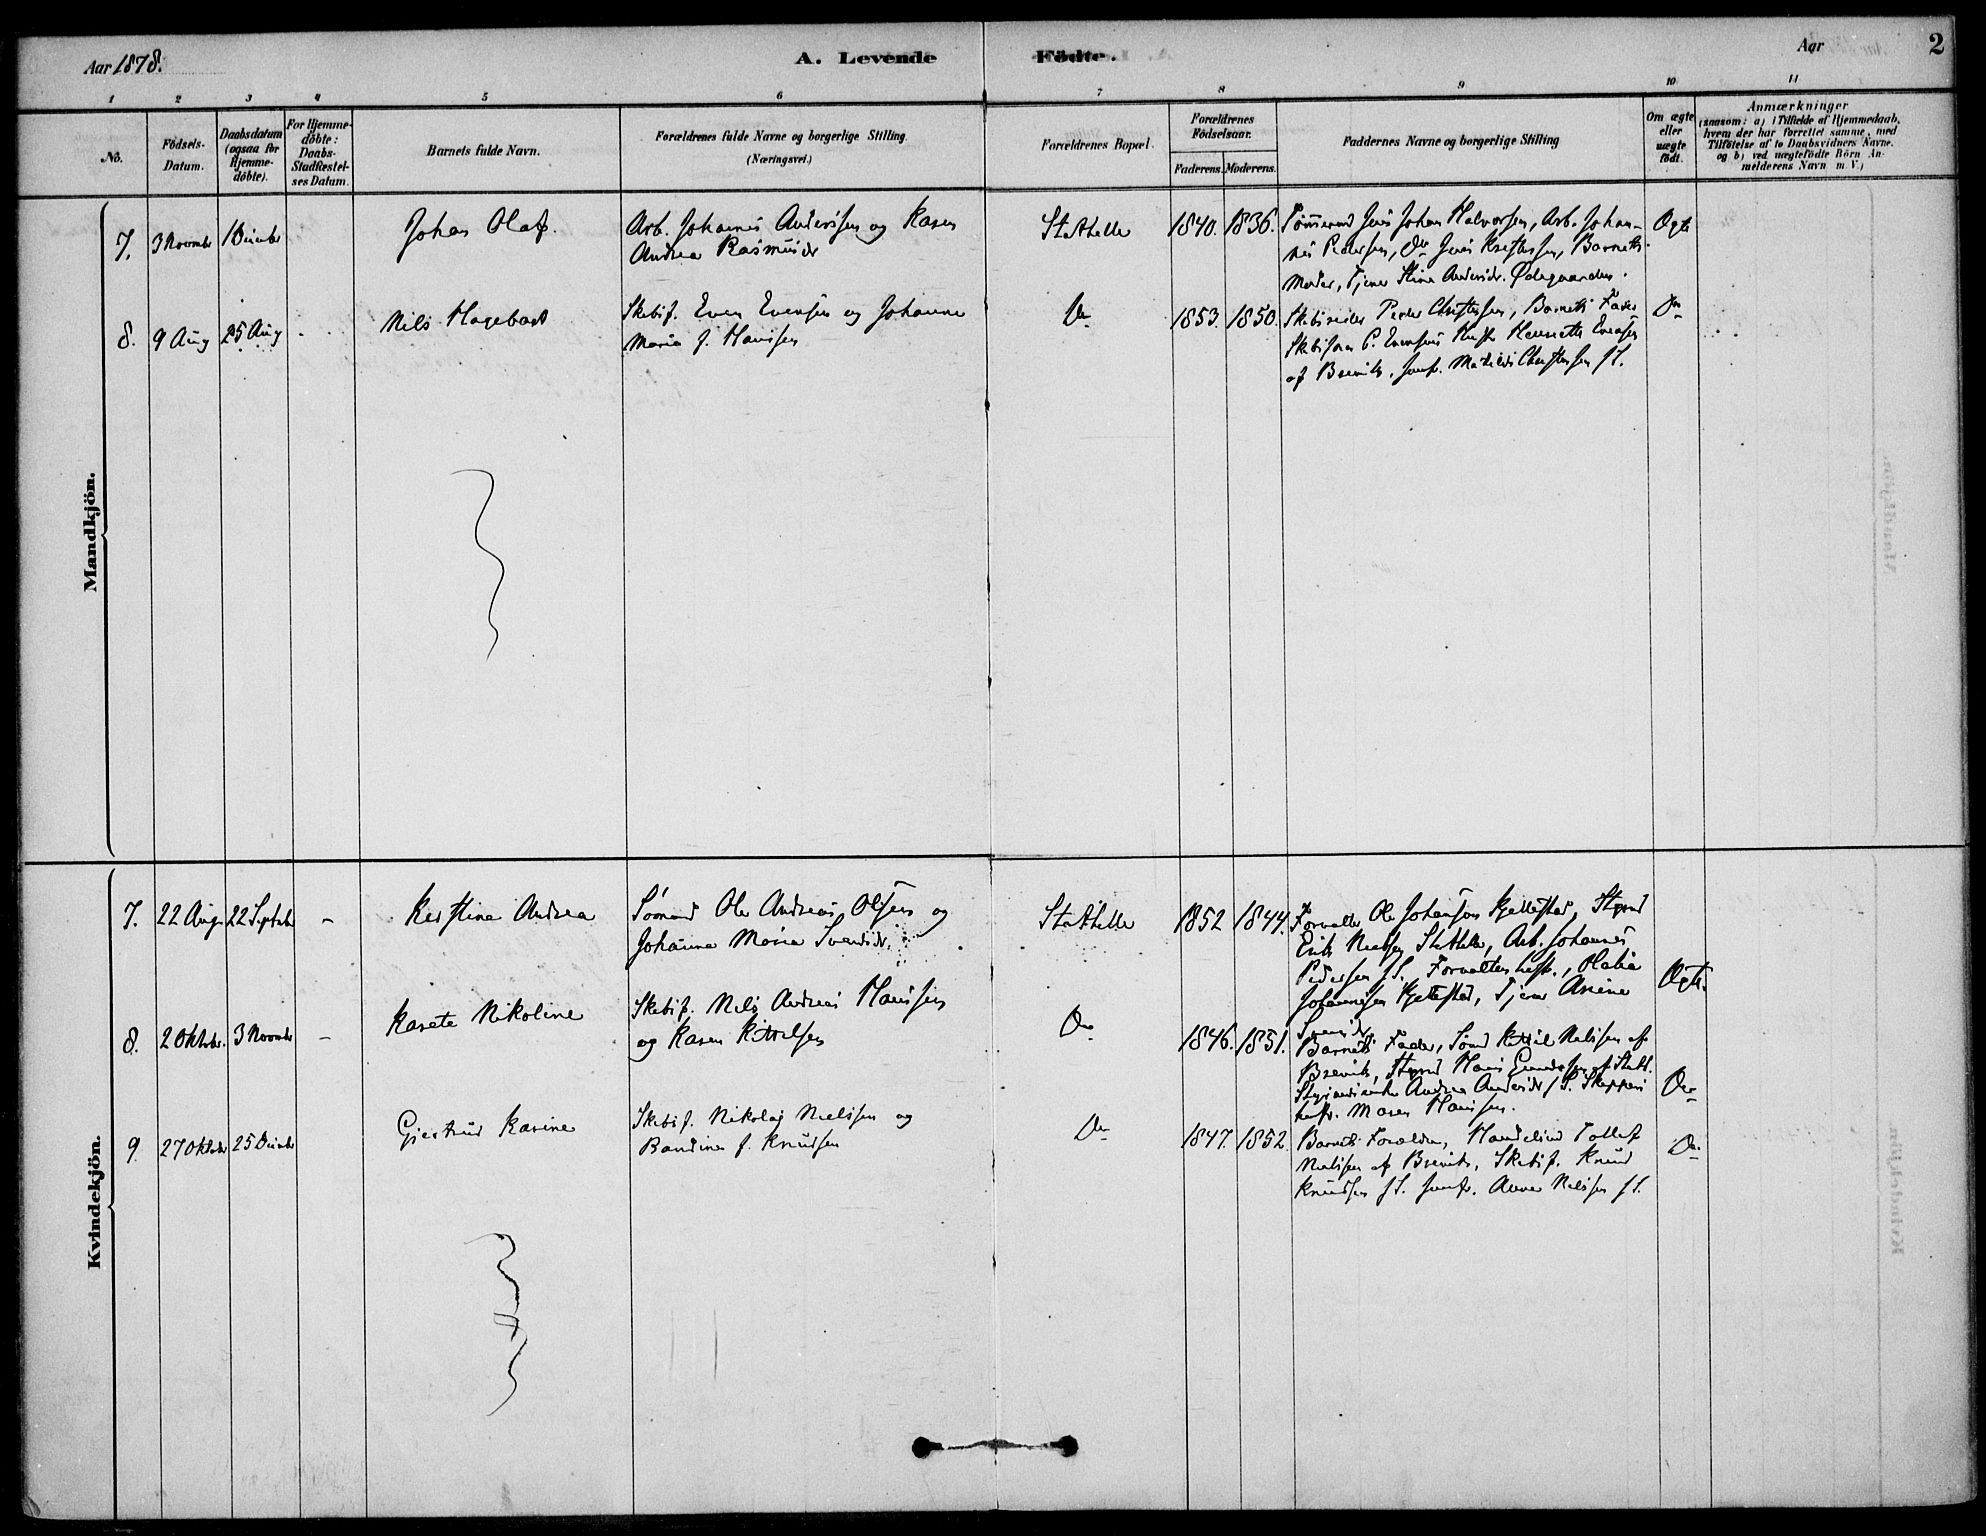 Aar 1878.
A. Levende Födte.
Aar
2
1 2 3 4 5 6 7 8 9 10 11
No.
Födsels-Datum.
Daabsdatum (ogsaa for Hjemme-döbte).
For Hjemme-döbte: Daabs-Stadfæstel-ses Datum.
Barnets fulde Navn.
Forældrenes fulde Navne og borgerlige Stilling.
(Næringsvei.)
Forældrenes Bopæl.
Forældrenes Födselsaar.
Faderens. Moderens.
Faddernes Navne og borgerlige Stilling
Om ægte eller uægte födt.
Anmærkninger
(saasom: a) i Tilfælde af Hjemmedaab,
hvem der har forrettet samme, med
Tilföielse af to Daabsvidners Navne,
og b) ved uægtefödte Börn An-
melderens Navn m. V.)
Mandkjön.
7. 3 Novembr 1 Decmbr Johan Olaf. Arb. Johannes Anderssen og Karen
Andrea Rasmusdr
Stathelle 1840. 1836. Tömmermd Jens Johan Halvorsen, Arb. Johan-
nes Pedersen, Do Jens Kristensen, Barnets
Moder, Tjener Stine Andersdr. Ødegaarden.
Ægte
8. 9 Aug 25 Aug Nils Hagebart Skibsf. Even Evensen og Johanne
Maria f. Hanssen
Do 1853. 1850. Skibsreder Peder Christensen, Barnets Fader
Skibsförer C. Evensens Hustr Henriette Evensen
af Brevik. Jomfr. Mathilde Christensen f S.
Do
Kvindekjön.
7. 22 Aug. 22 Septebr - Kirstine Andrea Sömand Ole Andreas Olsen og
Johanne Maria Svendsdr.
Stathelle 1852 1844. Forvalter Ole Johansen Kjellestad, Styrmd
Erik Nielsen Stathelle, Arb. Johannes
Pedersen f S. Forvalteres hustr., Olava
Johannesen Kjellestad, Tjener Anine
Svendsdr
Ægte.
8. 2 Oktobr. 3 Novembr - Karete Nikoline Skibsf. Nils Andreas Hanssen
og Karen Kittelsen
Do 1846. 1851. Barnets Fader, Sömd Kittil Nielssen af
Brevik, Styrmd Hans Gundersen af Stath.
Styrmandsenke Andrea Andersdr f S. Skippers
hustr. Maren Hanssen.
Do
9. 27 Oktobr 25 Decmbr Gjertrud Karine Skibsf. Nikolaj Nielssen og
Randine f. Knudsen
Do 1847. 1852 Barnets Forældre, Handelsmd Tollef
Nielssen af Brevik, Skibsf. Knud
Knudsen f S. Jomfr. Anne Nielsen f S.
Do